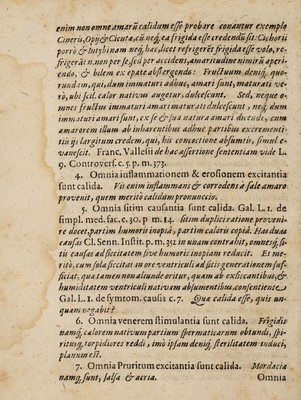 enim non omne amarũ calidum esse probare conantur exemplo
Cineris, Opij & Cicuta, cũ neq; ea frigida esse credendũ sit: Cichorii
porrò & Intybinam neq; hac, licet refrigerẽt frigida esse volo, re-
frigerãt n. non per se, sed per accidens, amaritudine nimirũ aperi-
endo, & bilem ex epate abstergendo: Fructuum deniq; quo-
rundem, qui, dum immaturi adhuc, amari sunt, maturati ve-
rò, ubi scil. calor nativus augetur, dulcescunt. Sed, neque o-
mnes fructus immaturi amari maturati dulcescunt, neq; dum
immaturi amari sunt, ex se & sua natura amari dicendi, cum
amarorem illum ab inhærentibus adhuc partibus excrementi-
tiis ijs largitum credem, qui, his concoctione absumtis, simul e-
vanescit. Franc. Vallesii de hac assertione sententiam vide L.
9. Controvers. c. 5. p. m. 373.
4. Omnia inflammationem & erosionem excitantia
sunt calida. Vis enim inflammans & corrodens a sale amaro
provenit, quem meritò calidum pronuncio.
5. Omnia sitim causantia sunt calida. Gal. L. 1. de
simpl. med. fac. c. 30. p. m. 14. Sitim duplici ratione proveni-
re docet, partim humoris inopiâ, partim caloris copiâ. Has duas
causas Cl. Senn. Instit. p. m. 352 in unam contrahit, omnesq; si-
tis causas ad siccitatem sive humoris inopiam reducit. Et me-
ritò, cum sola siccitas in ore ventriculi ad sitis generationem suf-
ficiat, quæ tamen non aliunde oritur, quam ab exsiccantibus, &
humiditatem ventriculi nativam absumentibus, consentiente
Gal. L. 1. de symtom. causis c. 7. Quæ calida esse, quis un-
quam negabit?
6. Omnia venerem stimulantia sunt calida. Frigidis
namq; calorem nativum partium spermaticarum obtundi, spi-
ritusq; torpidiores reddi, imò ipsam deniq; sterilitatem induci,
planum est.
7. Omnia Pruritum excitantia sunt calida. Mordacia
namq; sunt, salsa & acria. Omnia